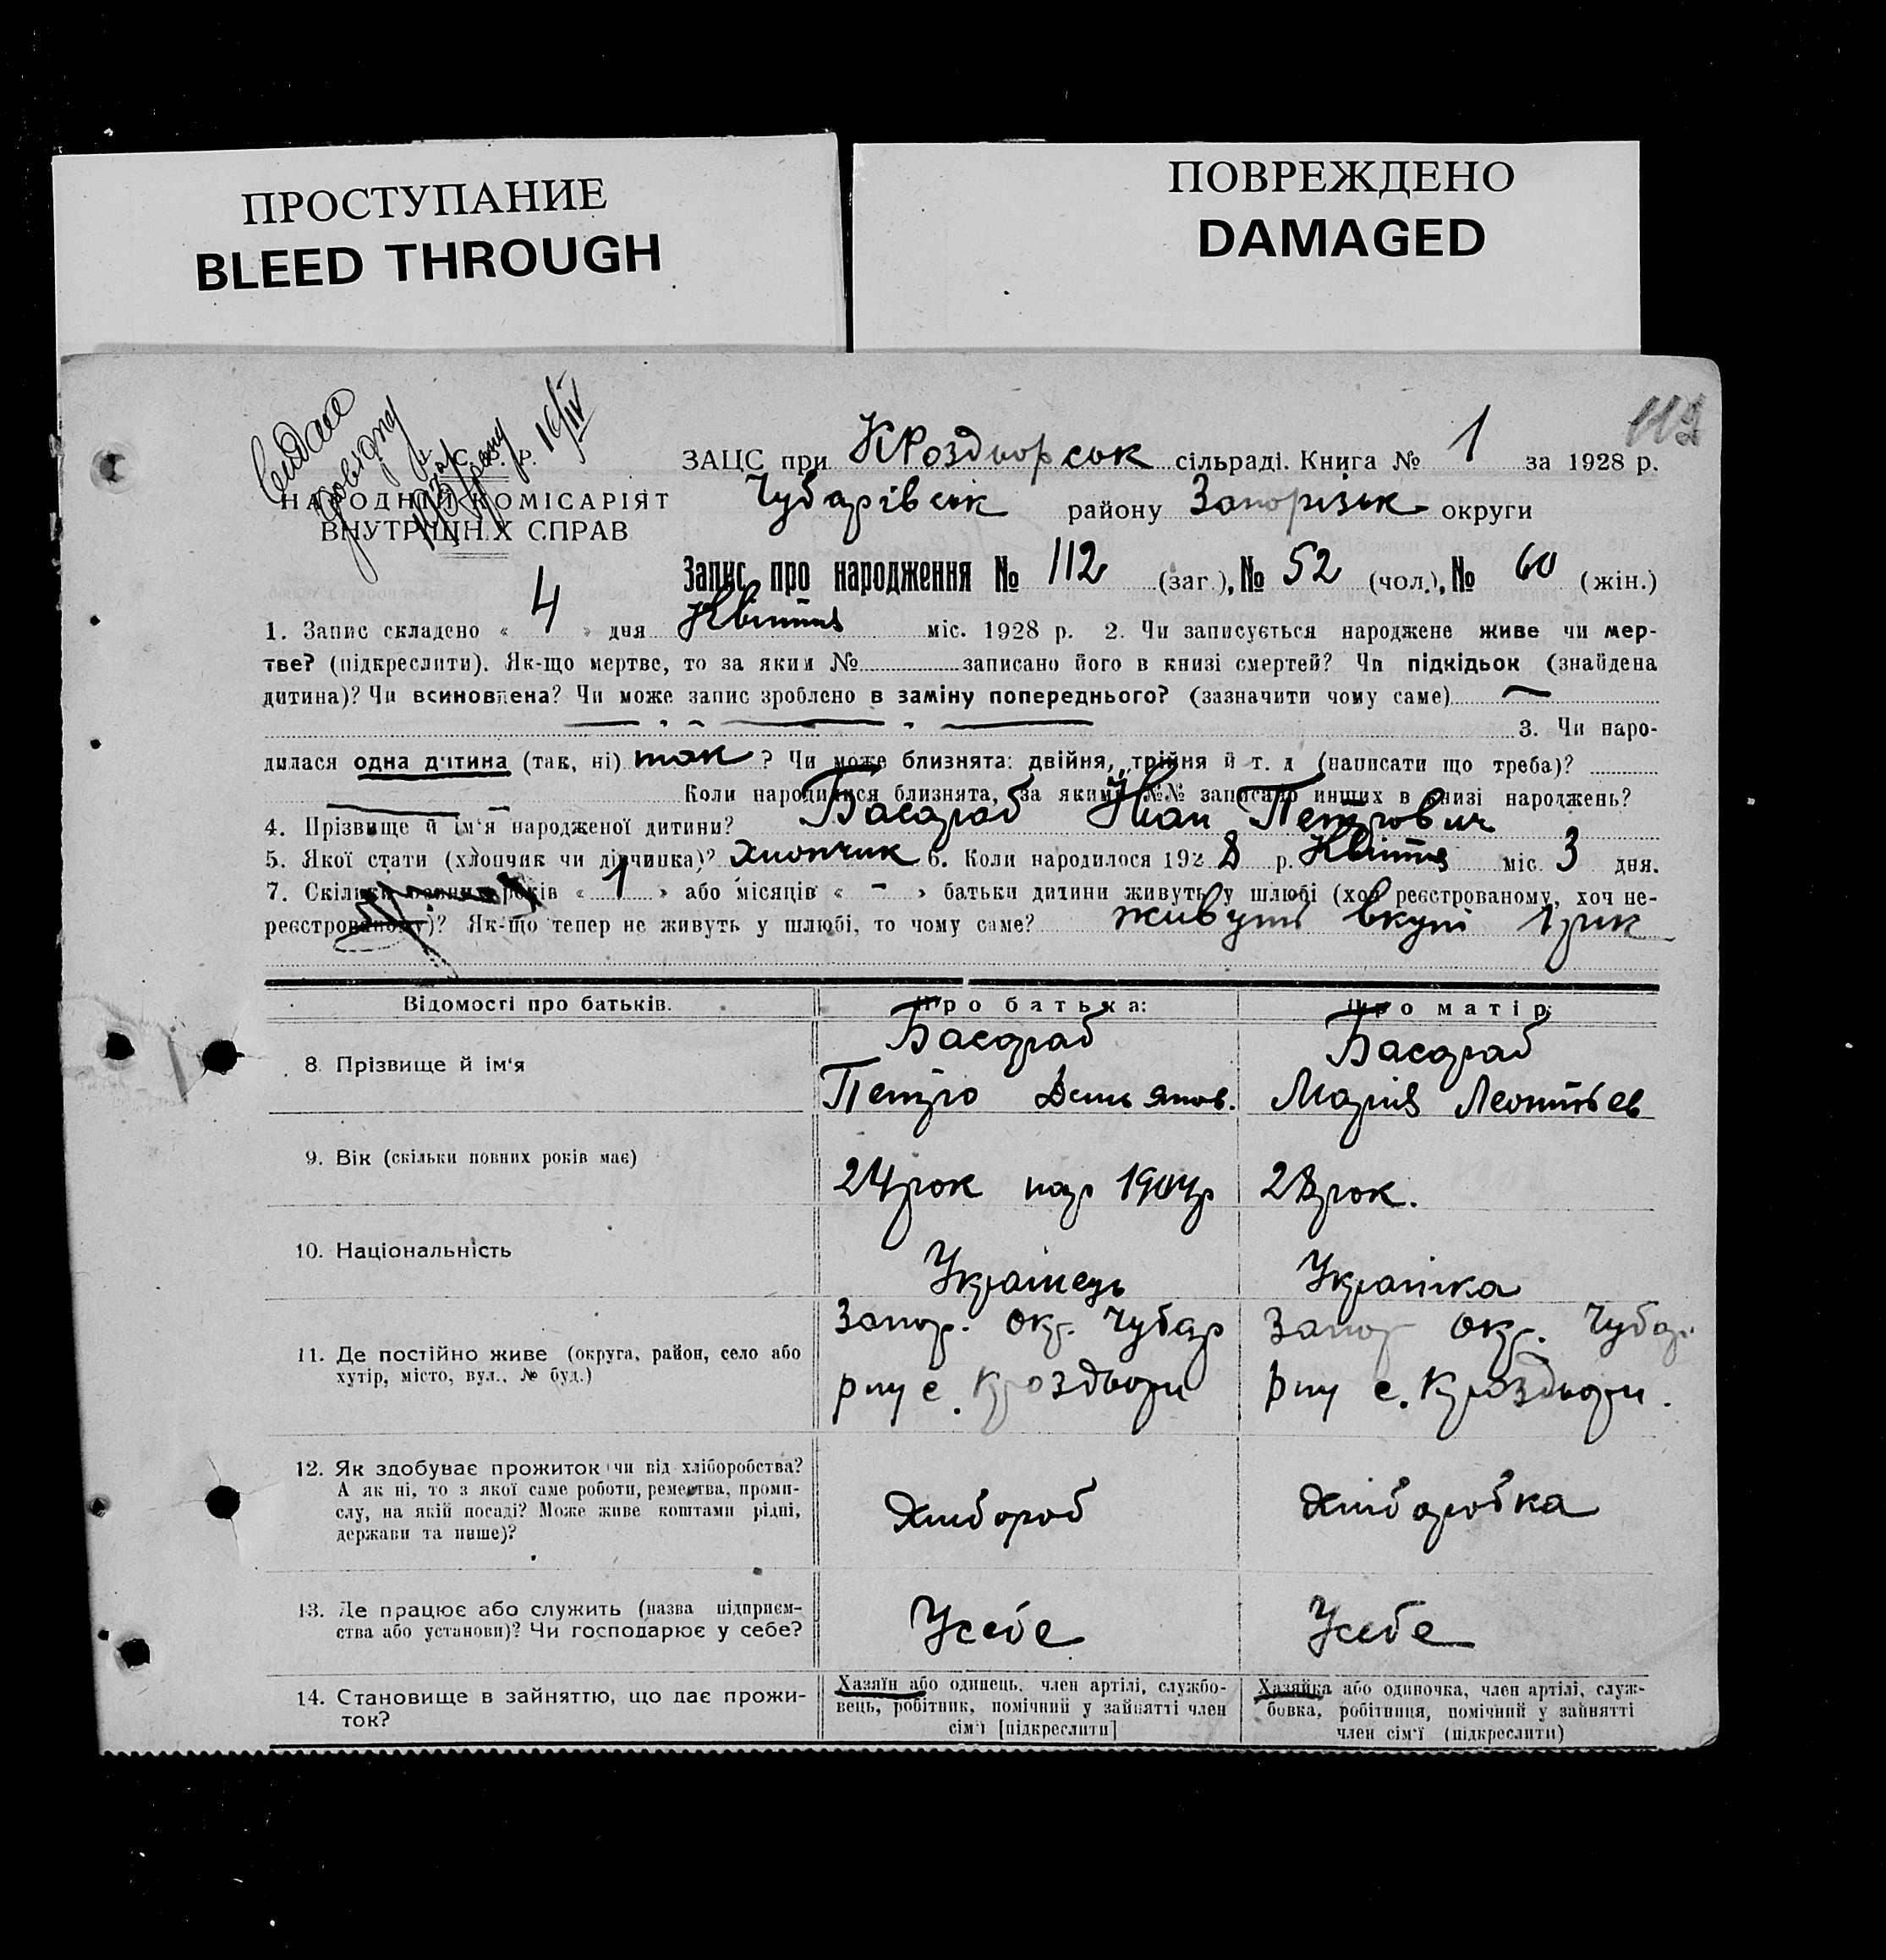 ПРОСТУПАНИЕ
BLEED THROUGH
ПОВРЕЖДЕНО
DAMAGED
112
Видано
16/IV
У. С. Р. Р.
НАРОДНІЙ КОМІСАРІЯТ
ВНУТРІШН.Х СПРАВ
ЗАЦС при КРоздорськ сільраді. Книга № 1 за 1928 р.
Чубарівськ району Запорізьк округи
Запис про народження № 112 (заг.), № 52 (чол.), № 60 (жін.)
1. Запис складено « 4 » дня Квітня міс. 1928 р. 2. Чи записується народжене живе чи мер-
тве? (підкреслити). Як-що мертве, то за яким № записано його в книзі смертей? Чи підкідьок (знайдена
дитина)? Чи всиновлена? Чи може запис зроблено в заміну попереднього? (зазначити чому саме)
3. Чи наро-
дилася одна дитина (так, ні) так ? Чи може близнята: двійня, трійня й т. д (написати що треба)?
Коли народилися близнята, за якими №№ записано инших в книзі народжень?
4. Прізвище й ім‘я народженої дитини? Басараб Иван Петрович
5. Якої стати (хлопчик чи дівчинка)? Хлопчик 6. Коли народилося 1928 р. Квітня міс. 3 дня.
7. Скільки повних років « 1 » або місяців « - » батьки дитини живуть у шлюбі (хоч реєстрованому, хоч не-
реєстрованому)? Як-що тепер не живуть у шлюбі, то чому саме? живуть вкупі 1 рік
Відомості про батьків.
Про батька:
Про матір:
8. Прізвище й ім‘я
Басараб
Петро Демьянов.
Басараб
Марія Леонтьев
9. Вік (скільки повних років має)
24 рок нар 1904 р
28 рок.
10. Національність
Українець
Українка
11. Де постійно живе (округа, район, село або
хутір, місто, вул., № буд.)
Запор. окр. Чубар
рну с. Кроздори
Запор окр. Чубар.
рну с. Кроздори.
12. Як здобуває прожиток чи від хліборобства?
А як ні, то з якої саме роботи, ремества, проми-
слу, на якій посаді? Може живе коштами рідні,
держави та инше)?
Хлібороб
Хліборобка
13. Де працює або служить (назва підприєм-
ства або установи)? Чи господарює у себе?
Усебе
Усебе
14. Становище в зайняттю, що дає прожи-
ток?
Хазяїн або одинець, член артілі, службо-
вець, робітник, помічний у зайнятті член
сім‘ї [підкреслити]
Хазяйка або одиночка, член артілі, служ-
бовка, робітниця, помічний у зайнятті
член сім‘ї (підкреслити)